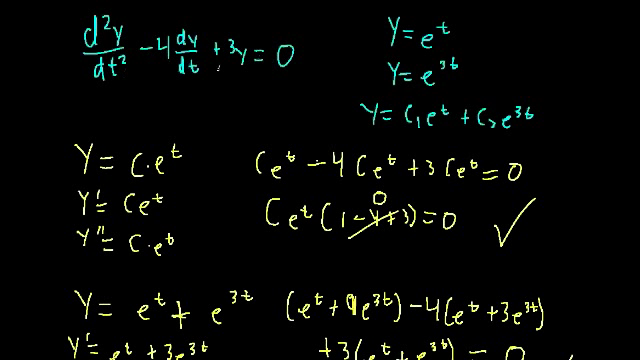 d²y/dt² − 4 dy/dt + 3y = 0
Y = e^t
Y = e^3t
Y = C₁e^t + C₂e^3t
Y = C·e^t
Y' = Ce^t
Y'' = C·e^t
Ce^t − 4Ce^t + 3Ce^t = 0
Ce^t (1 − 4 + 3) = 0
0
✓
Y = e^t + e^3t
Y' = e^t + 3e^3t
(e^t + 9e^3t) − 4(e^t + 3e^3t)
+3(e^t + e^3t) = 0